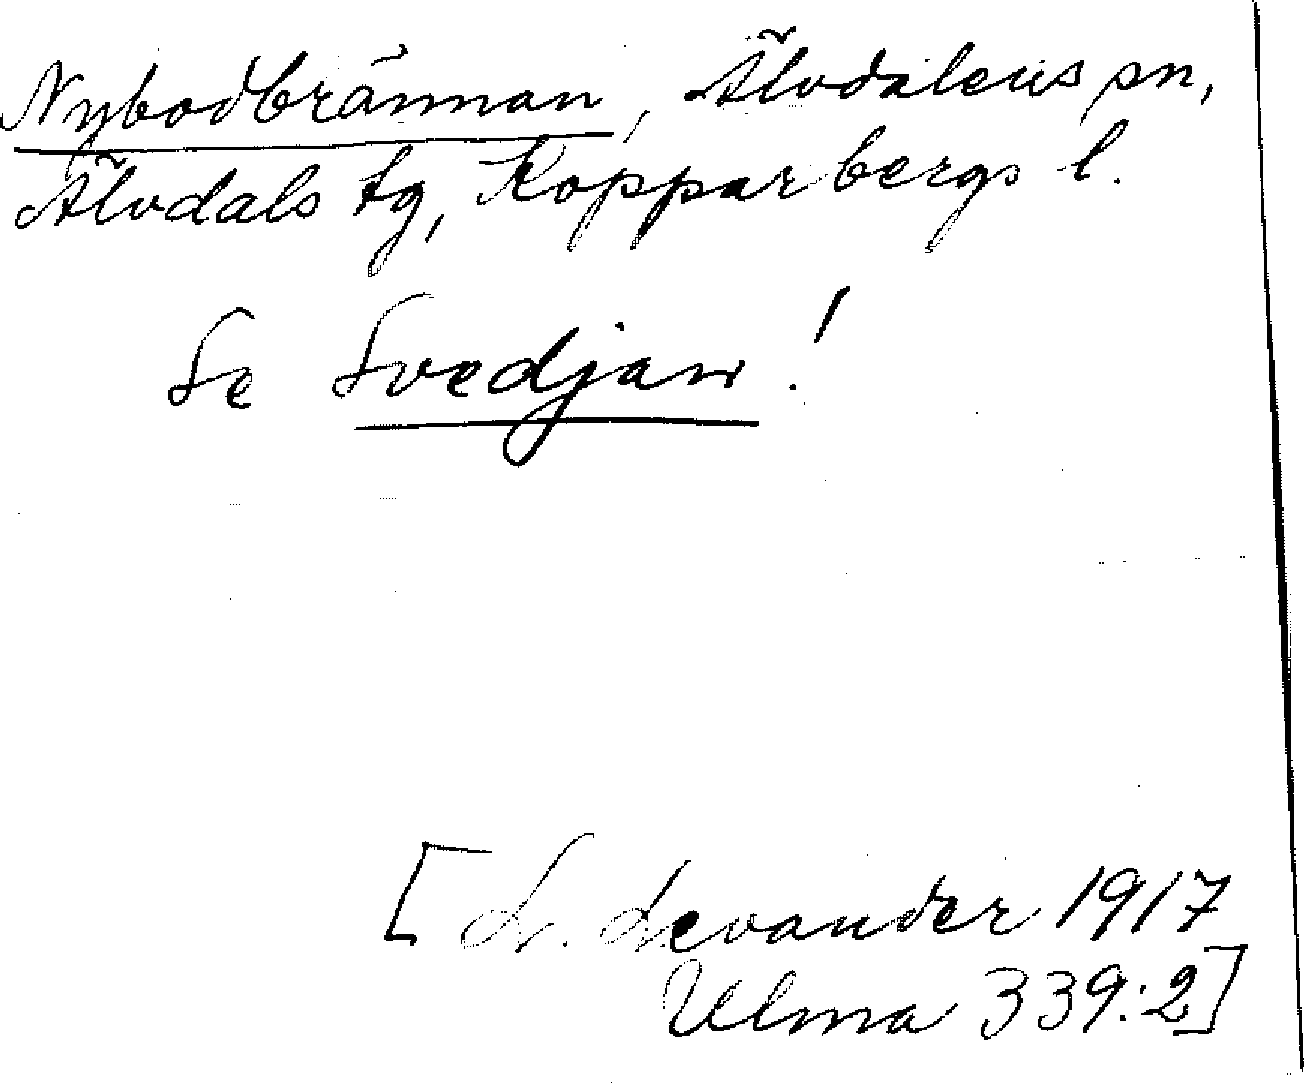 Nybodbrännan, Älvdalens sn,
Älvdals tg, Kopparbergs l.
Se Svedjan!
[L. Levander 1917
Ulma 339:2]